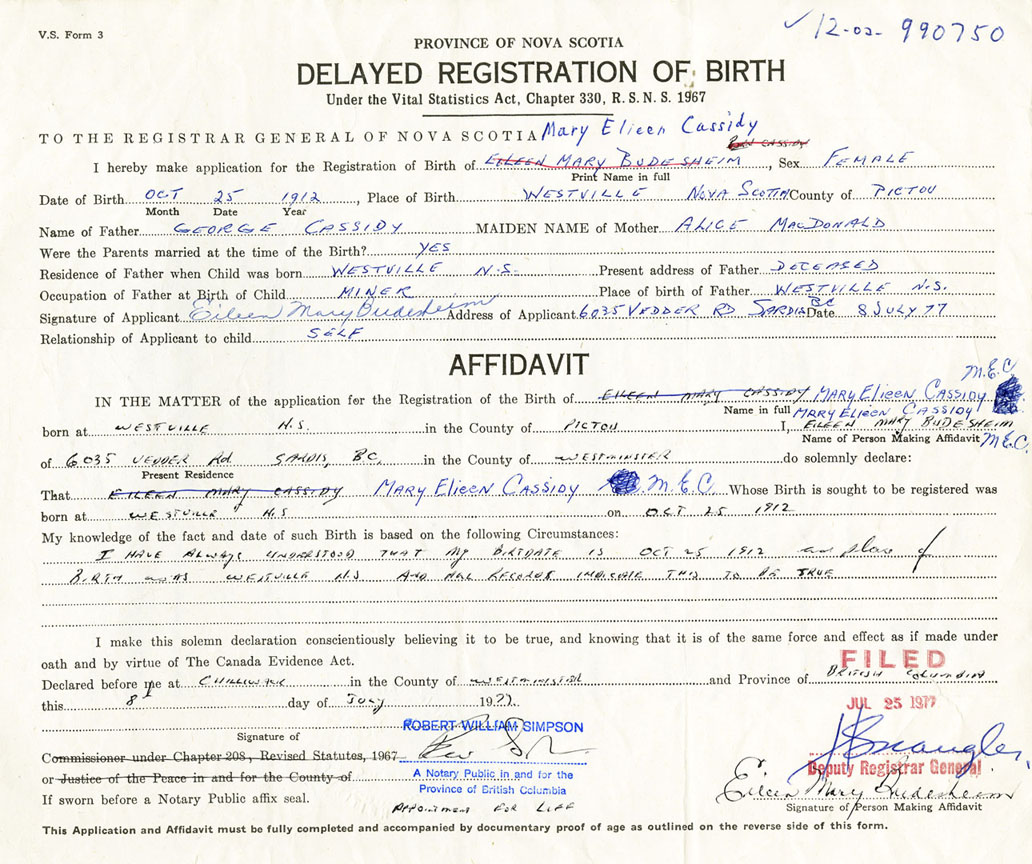 V.S. Form 3
✓ 12-02- 990750
PROVINCE OF NOVA SCOTIA
DELAYED REGISTRATION OF BIRTH
Under the Vital Statistics Act, Chapter 330, R.S.N.S. 1967
TO THE REGISTRAR GENERAL OF NOVA SCOTIA Mary Elieen Cassidy
CASSIDY
I hereby make application for the Registration of Birth of EILEEN MARY BUDESHEIM, Sex FEMALE
Print Name in full
Date of Birth OCT 25 1912, Place of Birth WESTVILLE NOVA SCOTIA County of PICTOU
Month Date Year
Name of Father GEORGE CASSIDY MAIDEN NAME of Mother ALICE MACDONALD
Were the Parents married at the time of the Birth? YES
Residence of Father when Child was born WESTVILLE N.S. Present address of Father DECEASED
Occupation of Father at Birth of Child MINER Place of birth of Father WESTVILLE N.S.
Signature of Applicant Eileen Mary Budesheim Address of Applicant 6035 VEDDER RD SARDIS BC Date 8 JULY 77
Relationship of Applicant to child SELF
AFFIDAVIT
M.E.C.
IN THE MATTER of the application for the Registration of Birth of EILEEN MARY CASSIDY MARY ELIEEN CASSIDY
Name in full MARY ELIEEN CASSIDY
born at WESTVILLE N.S. in the County of PICTOU I, EILEEN MARY BUDESHEIM
Name of Person Making Affidavit M.E.C.
of 6035 VEDDER Rd SARDIS, BC. in the County of WESTMINSTER do solemnly declare:
Present Residence
That EILEEN MARY CASSIDY MARY ELIEEN CASSIDY M.E.C. Whose Birth is sought to be registered was
born at WESTVILLE N.S on OCT 25 1912
My knowledge of the fact and date of such Birth is based on the following Circumstances:
I HAVE ALWAYS UNDERSTOOD THAT MY BIRTHDATE IS OCT 25 1912 and place of
BIRTH WAS WESTVILLE N.S AND ALL RECORDS INDICATE THIS TO BE TRUE
I make this solemn declaration conscientiously believing it to be true, and knowing that it is of the same force and effect as if made under
oath and by virtue of The Canada Evidence Act.
FILED
Declared before me at CHILLIWACK in the County of WESTMINSTER and Province of BRITISH COLUMBIA
this 8 day of JULY 1977.
JUL 25 1977
ROBERT WILLIAM SIMPSON
Signature of
Commissioner under Chapter 208, Revised Statutes, 1967
Deputy Registrar General
or Justice of the Peace in and for the County of
A Notary Public in and for the
Province of British Columbia
Eileen Mary Budesheim
If sworn before a Notary Public affix seal.
APPOINTMENT FOR LIFE
Signature of Person Making Affidavit
This Application and Affidavit must be fully completed and accompanied by documentary proof of age as outlined on the reverse side of this form.